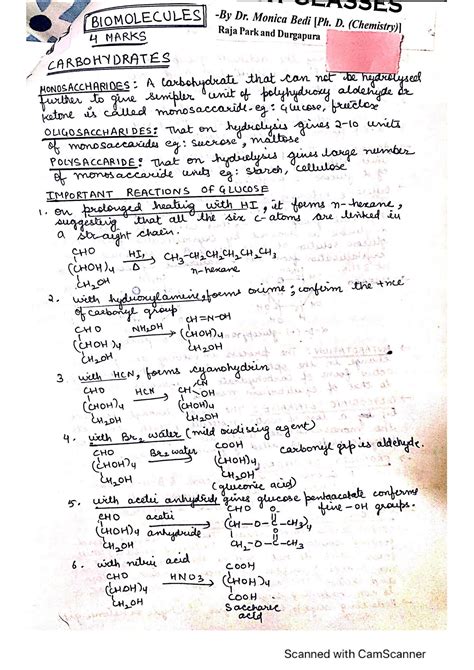 CLASSES
BIOMOLECULES
-By Dr. Monica Bedi [Ph. D. (Chemistry)]
4 MARKS
Raja Park and Durgapura
CARBOHYDRATES
MONOSACCHARIDES: A carbohydrate that can not be hydrolysed
further to give simpler unit of polyhydroxy aldehyde or
ketone is called monosaccaride. eg: Glucose, fructose
OLIGOSACCHARIDES: That on hydrolysis gives 2-10 units
of monosaccarides eg: sucrose, maltose
POLYSACCARIDE: That on hydrolysis gives large number
of monosaccaride units eg: starch, cellulose
IMPORTANT REACTIONS OF GLUCOSE
1. On prolonged heating with HI, it forms n-hexane,
suggesting that all the six C-atoms are linked in
a straight chain.
CHO
(CHOH)4 HI, Δ CH3-CH2CH2CH2CH2CH3
CH2OH n-hexane
2. with hydroxylamine, forms oxime; confirm the
of carbonyl group
CHO NH2OH CH=N-OH
(CHOH)4 (CHOH)4
CH2OH CH2OH
3 with HCN, forms cyanohydrin
CHO HCN CH CN OH
(CHOH)4 (CHOH)4
CH2OH CH2OH
4. with Br2 water (mild oxidising agent)
CHO Br2 water COOH carbonyl grp is aldehyde.
(CHOH)4 (CHOH)4
CH2OH CH2OH
(gluconic acid)
5. with acetic anhydride gives glucose pentacetate conferms
five -OH groups.
CHO acetic CHO O
(CHOH)4 anhydride (CH-O-C-CH3)4
CH2OH O
CH2-O-C-CH3
6. with nitric acid
CHO HNO3 COOH
(CHOH)4 (CHOH)4
CH2OH COOH
Saccharic
acid
Scanned with CamScanner